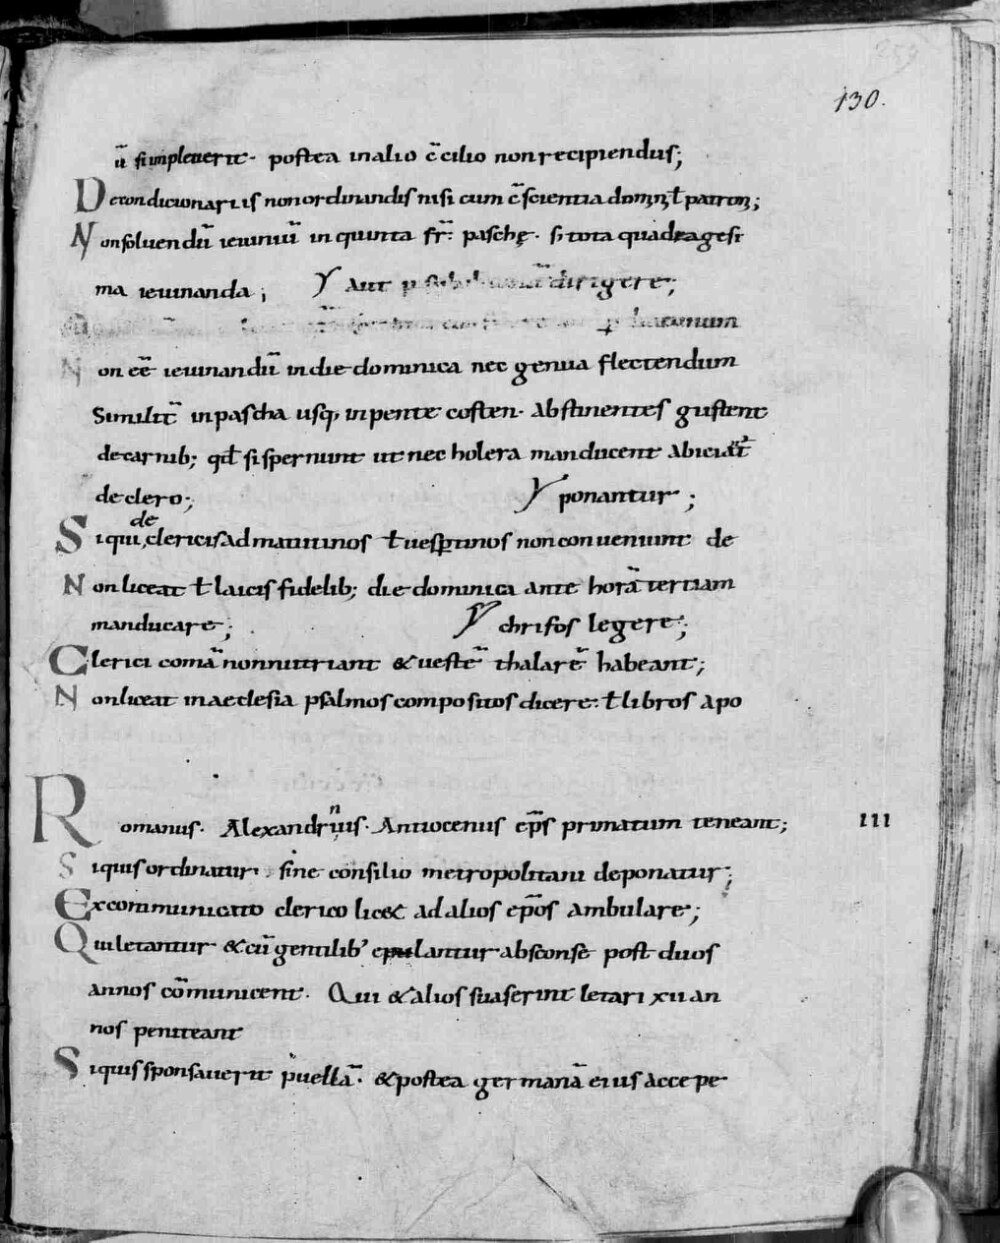 130.
ū si impleuerit. postea in alio c̄cilio non recipiendus;
De condicionariis non ordinandis nisi cum c̄scientia domnoꝝ ƚ patronoꝝ;
Non soluendū ieiuniū in quinta fr̄ paschę. si tota quadragesi
ma ieiunanda; aut dirigere;
hacunum
Non eē ieiunandū in die dominica nec genua flectendum
Similit̄ in pascha usq; in pente costen. Abstinentes gustent
de carnib; qđ si spernunt ut nec holera manducent abiciāt̄
de clero; ponantur;
de
Si qui, clericis ad matutinos ƚ uesꝑtinos non conueniunt de
Non liceat ƚ laicis fidelib; die dominica ante horā tertiam
manducare; chrifos legere;
Clerici comā non nutriant & uestē thalarē habeant;
Non liceat in aeclesia psalmos compositos dicere. ƚ libros apo
n
Romanus. Alexandrius. Antiocenus ep̄s primatum teneant; III
Si quis ordinatur. sine consilio metropolitani deponatur;
Excommunicato clerico lic& ad alios ep̄os ambulare;
Qui letantur & cū gentilib' epulantur absconse post duos
annos cōmunicent. Qui & alios suaserint letari xii an
nos peniteant
Si quis sponsauerit puellā. & postea germanā eius accepe